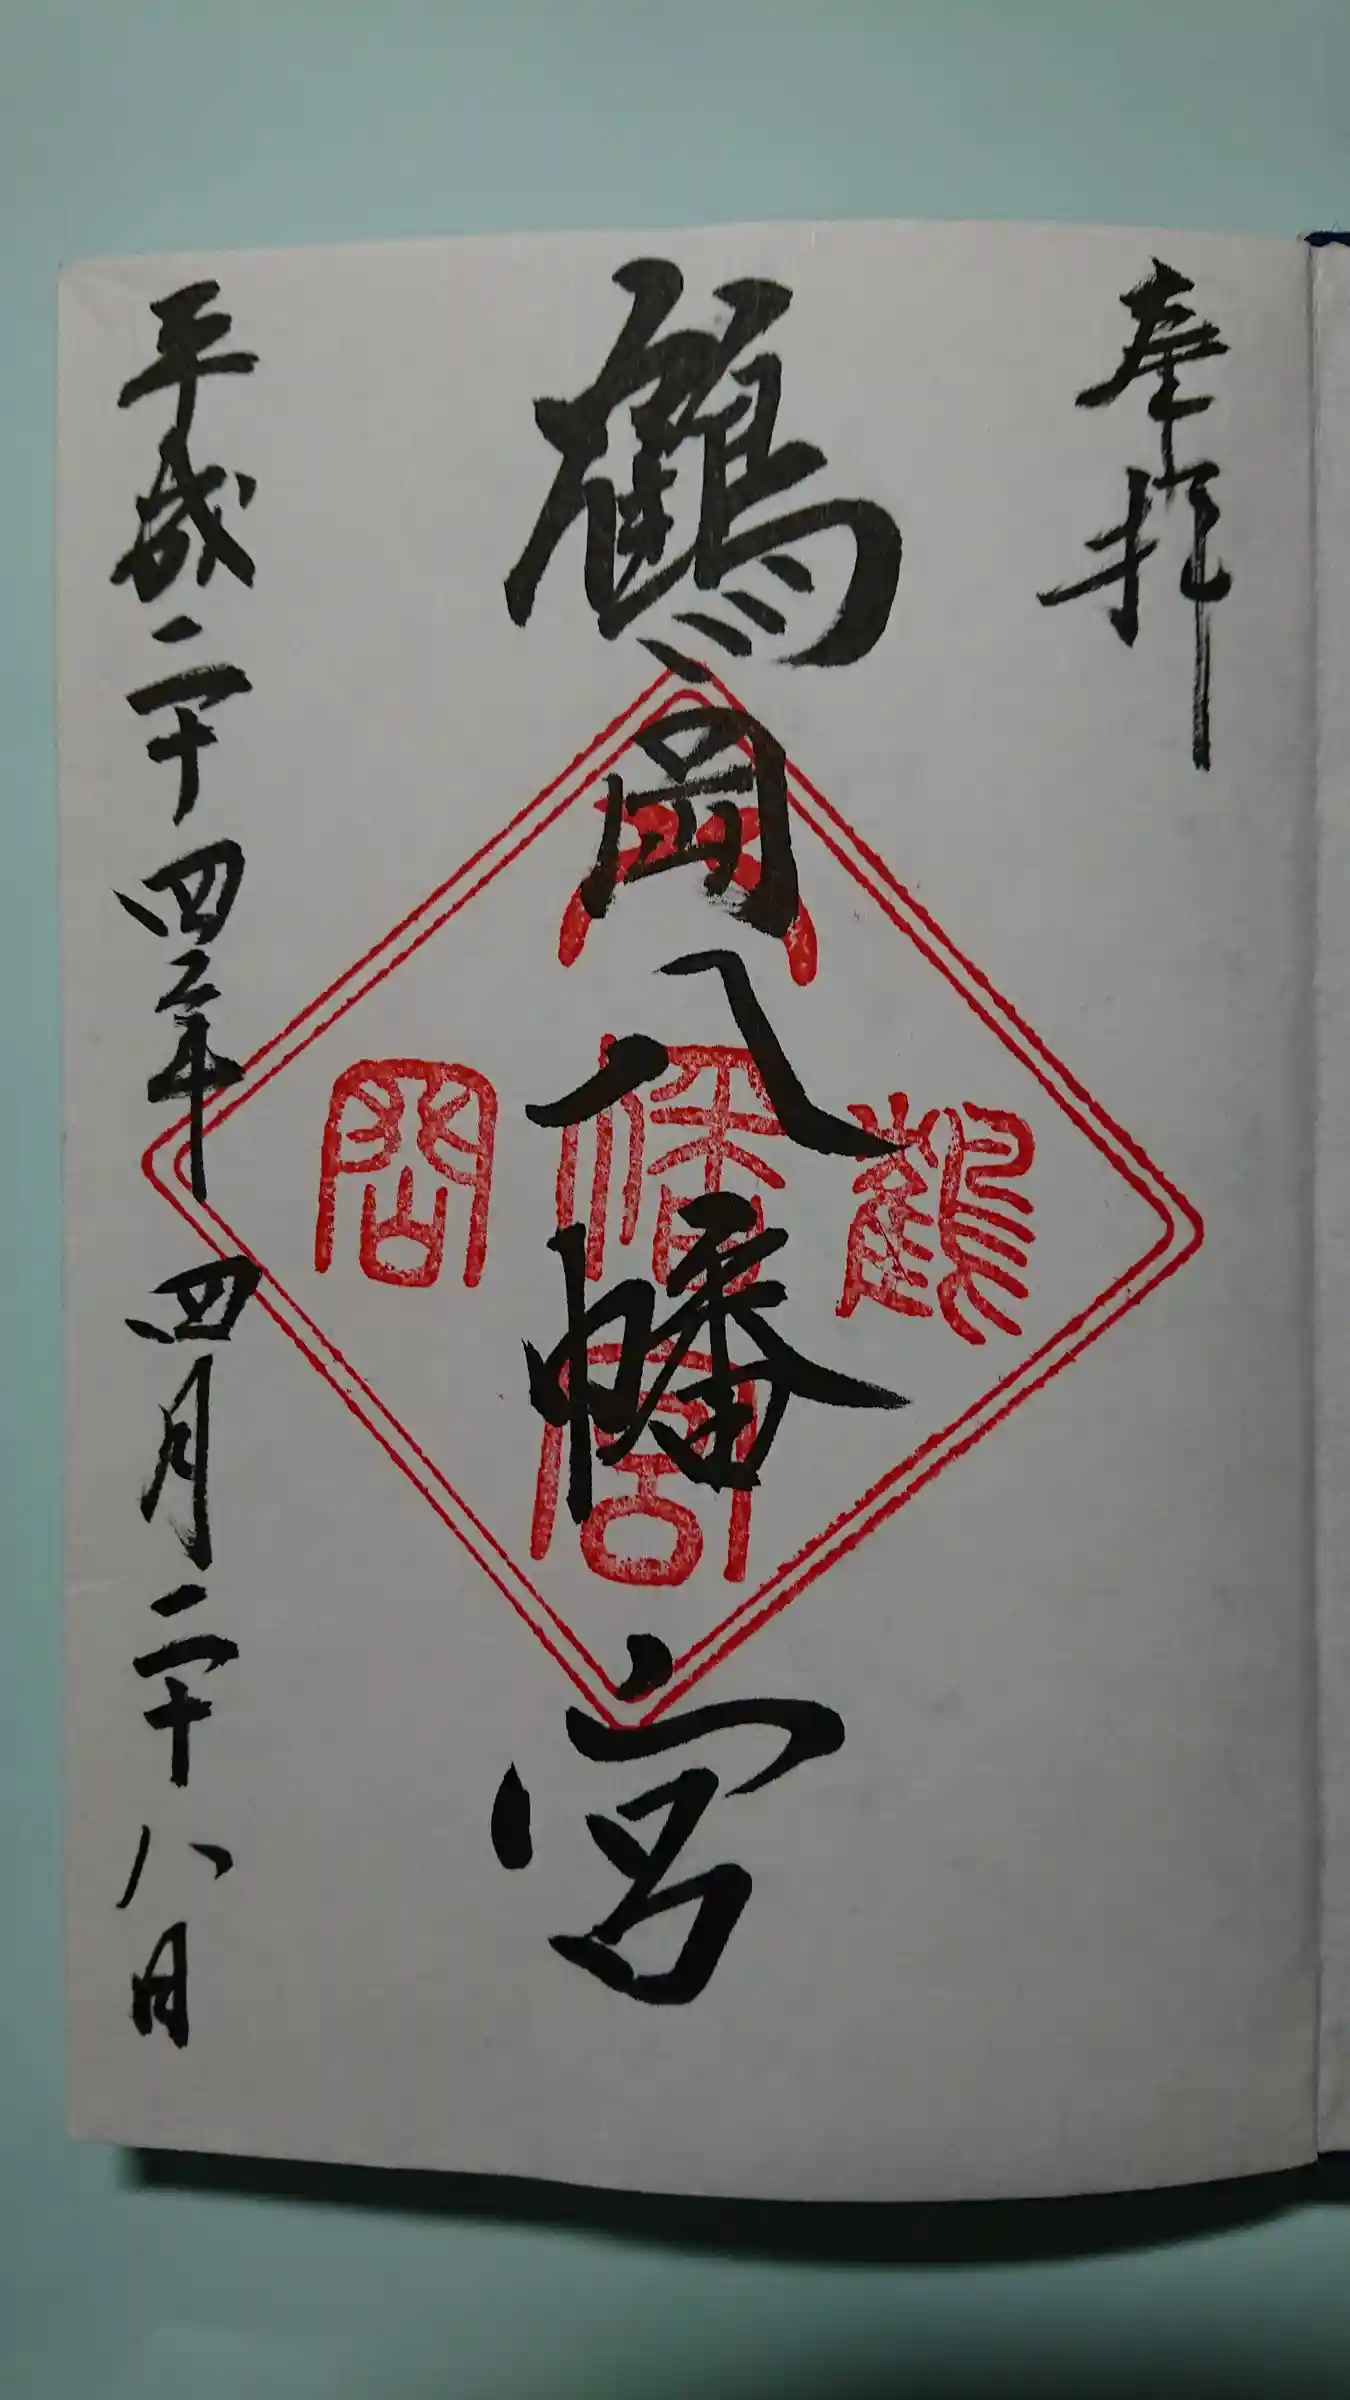 奉拝
鶴岡八幡宮
鶴
八幡宮
岡
平成二十四年四月二十八日